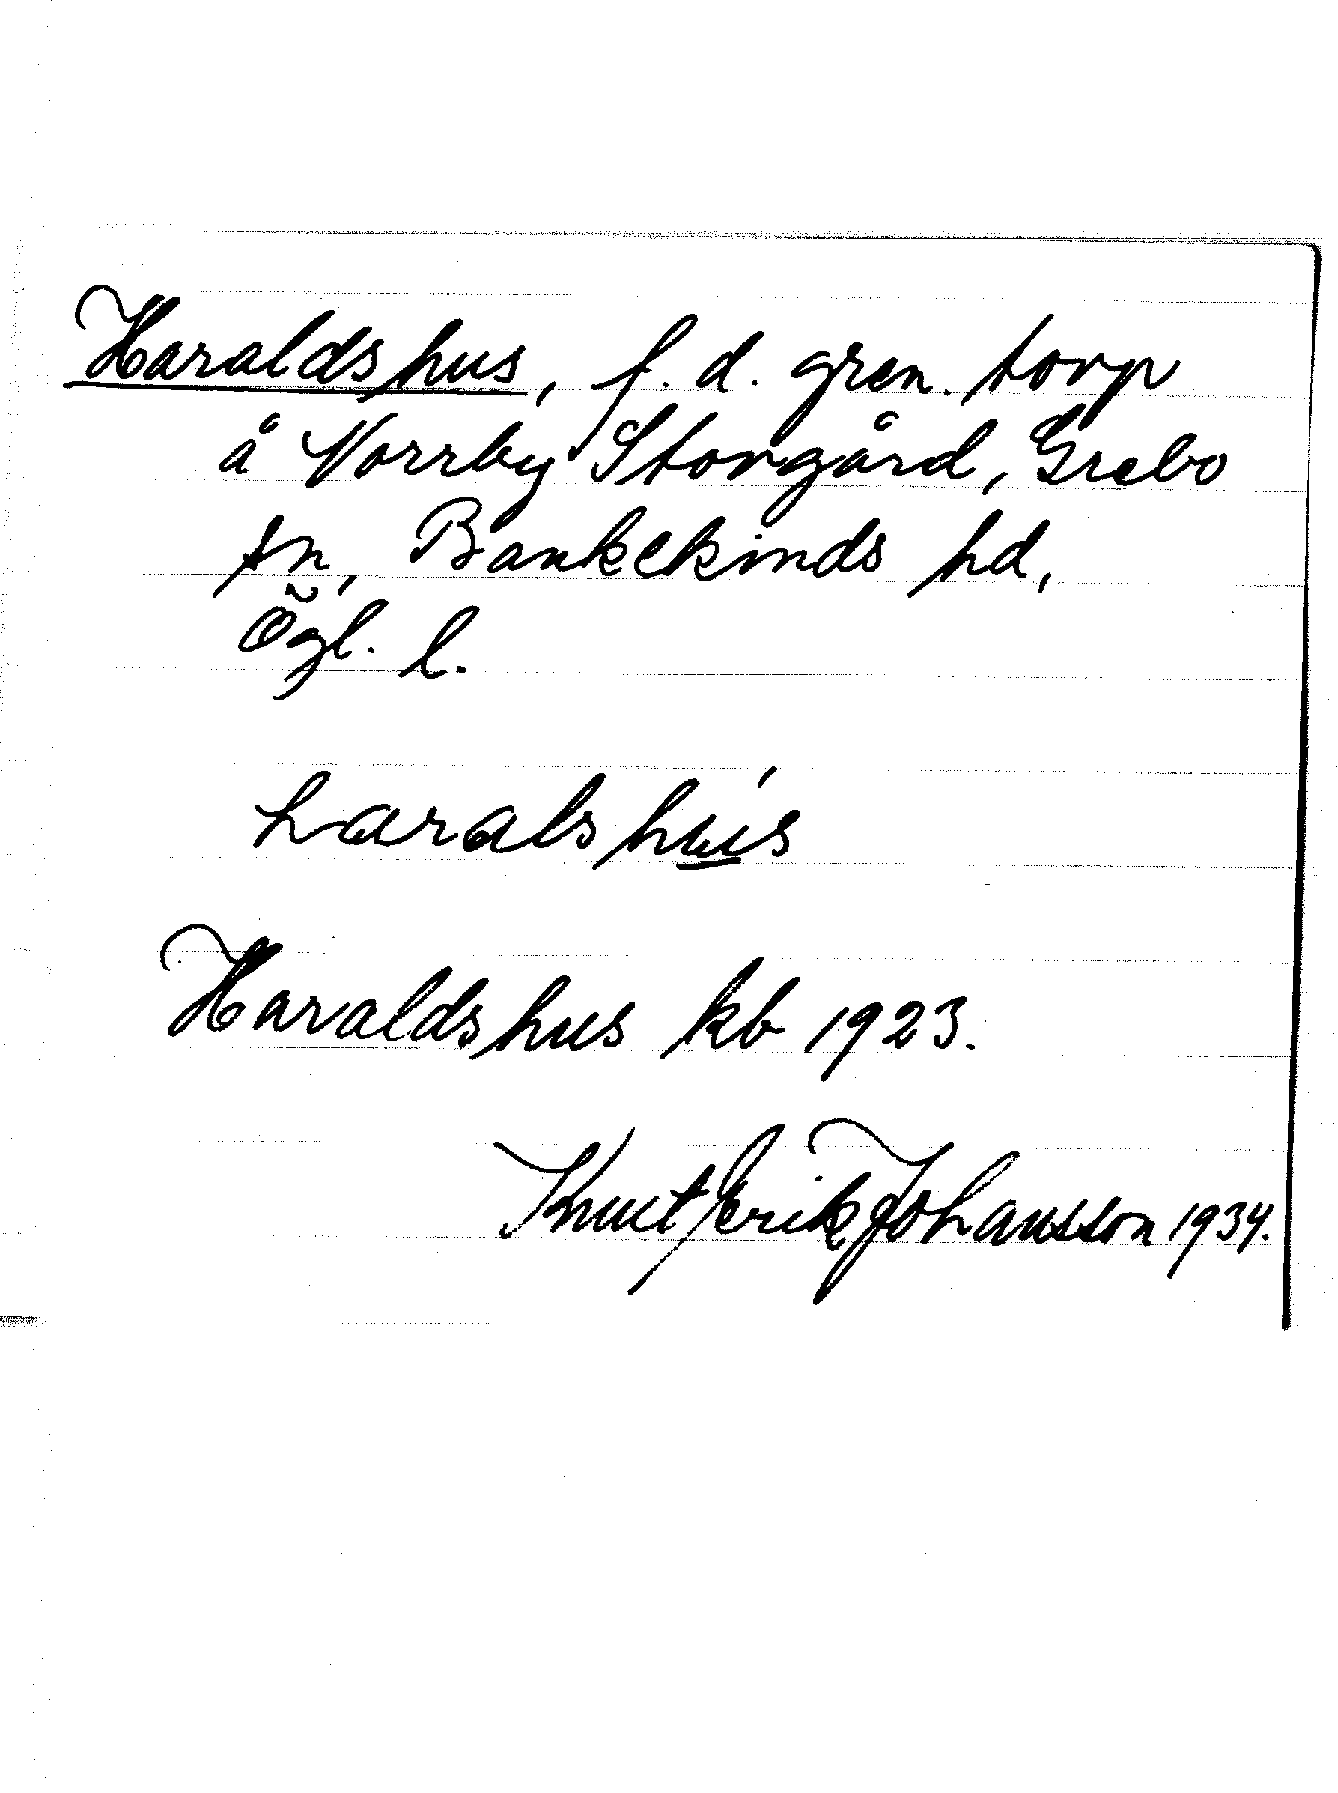 Haraldshus, f. d. gren. torp
å Norrby Storgård, Grebo
sn, Bankekinds hd,
Ögl. l.
haralshu̲s
Haraldshus kb 1923.
Knut Erik Johansson 1934.